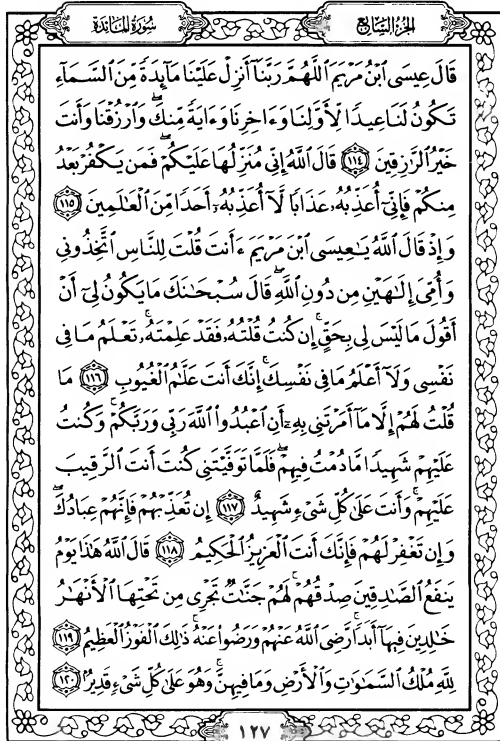 سورة المائدة
الجزء السابع
قَالَ عِيسَى ٱبْنُ مَرْيَمَ ٱللَّهُمَّ رَبَّنَآ أَنزِلْ عَلَيْنَا مَآئِدَةً مِّنَ ٱلسَّمَآءِ
تَكُونُ لَنَا عِيدًا لِّأَوَّلِنَا وَءَاخِرِنَا وَءَايَةً مِّنكَۖ وَٱرْزُقْنَا وَأَنتَ
خَيْرُ ٱلرَّٰزِقِينَ ١١٤ قَالَ ٱللَّهُ إِنِّى مُنَزِّلُهَا عَلَيْكُمْۖ فَمَن يَكْفُرْ بَعْدُ
مِنكُمْ فَإِنِّىٓ أُعَذِّبُهُۥ عَذَابًا لَّآ أُعَذِّبُهُۥٓ أَحَدًا مِّنَ ٱلْعَٰلَمِينَ ١١٥
وَإِذْ قَالَ ٱللَّهُ يَٰعِيسَى ٱبْنَ مَرْيَمَ ءَأَنتَ قُلْتَ لِلنَّاسِ ٱتَّخِذُونِى
وَأُمِّىَ إِلَٰهَيْنِ مِن دُونِ ٱللَّهِۖ قَالَ سُبْحَٰنَكَ مَا يَكُونُ لِىٓ أَنْ
أَقُولَ مَا لَيْسَ لِى بِحَقٍّۚ إِن كُنتُ قُلْتُهُۥ فَقَدْ عَلِمْتَهُۥۚ تَعْلَمُ مَا فِى
نَفْسِى وَلَآ أَعْلَمُ مَا فِى نَفْسِكَۚ إِنَّكَ أَنتَ عَلَّٰمُ ٱلْغُيُوبِ ١١٦ مَا
قُلْتُ لَهُمْ إِلَّا مَآ أَمَرْتَنِى بِهِۦٓ أَنِ ٱعْبُدُوا۟ ٱللَّهَ رَبِّى وَرَبَّكُمْۚ وَكُنتُ
عَلَيْهِمْ شَهِيدًا مَّا دُمْتُ فِيهِمْۖ فَلَمَّا تَوَفَّيْتَنِى كُنتَ أَنتَ ٱلرَّقِيبَ
عَلَيْهِمْۚ وَأَنتَ عَلَىٰ كُلِّ شَىْءٍ شَهِيدٌ ١١٧ إِن تُعَذِّبْهُمْ فَإِنَّهُمْ عِبَادُكَۖ
وَإِن تَغْفِرْ لَهُمْ فَإِنَّكَ أَنتَ ٱلْعَزِيزُ ٱلْحَكِيمُ ١١٨ قَالَ ٱللَّهُ هَٰذَا يَوْمُ
يَنفَعُ ٱلصَّٰدِقِينَ صِدْقُهُمْۚ لَهُمْ جَنَّٰتٌ تَجْرِى مِن تَحْتِهَا ٱلْأَنْهَٰرُ
خَٰلِدِينَ فِيهَآ أَبَدًاۚ رَّضِىَ ٱللَّهُ عَنْهُمْ وَرَضُوا۟ عَنْهُۚ ذَٰلِكَ ٱلْفَوْزُ ٱلْعَظِيمُ ١١٩
لِلَّهِ مُلْكُ ٱلسَّمَٰوَٰتِ وَٱلْأَرْضِ وَمَا فِيهِنَّۚ وَهُوَ عَلَىٰ كُلِّ شَىْءٍ قَدِيرٌۢ ١٢٠
١٢٧